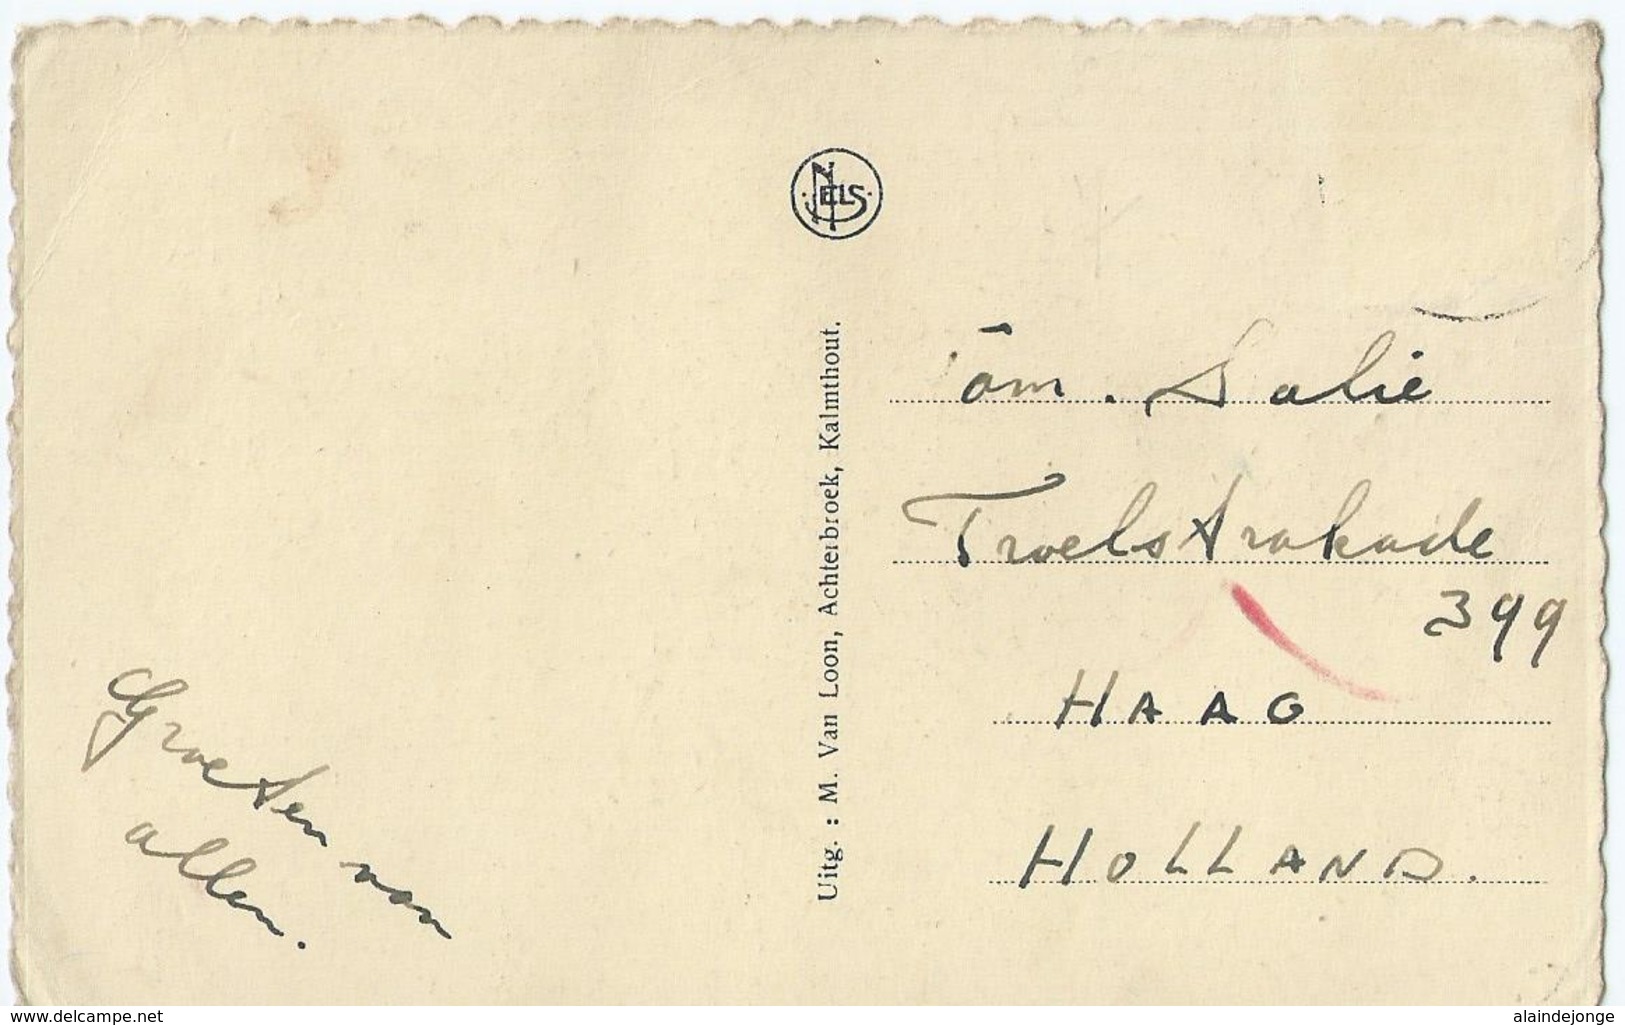 NELS
Fam. Salie
Troelstrakade
399
HAAG
HOLLAND.
Uitg. : M. Van Loon, Achterbroek, Kalmthout.
Groeten van
allen.
www.delcampe.net
alaindejonge